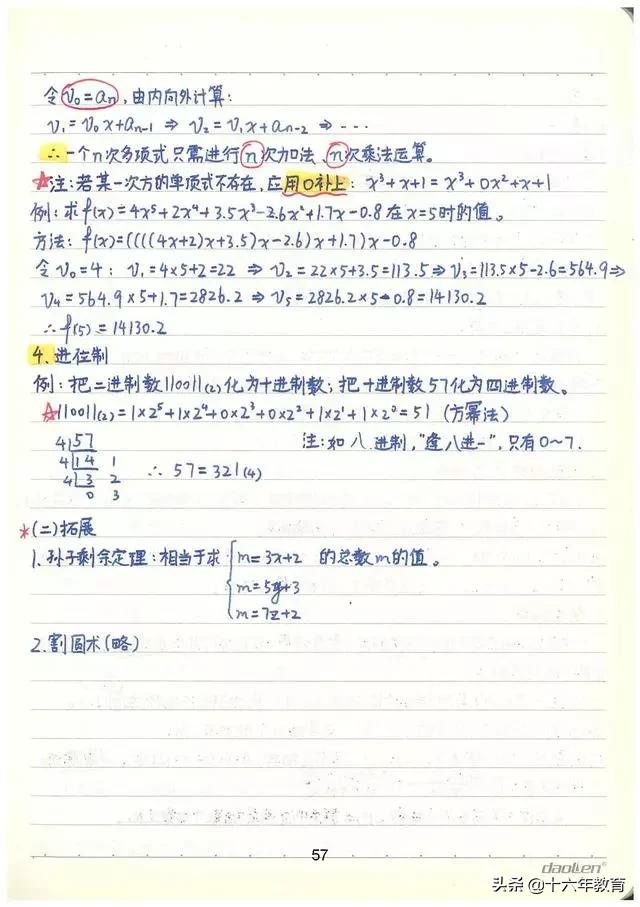 令 v₀=aₙ, 由内向外计算:
v₁=v₀x+aₙ₋₁ ⇒ v₂=v₁x+aₙ₋₂ ⇒ ⋯
∴一个n次多项式只需进行n次加法、n次乘法运算。
☆注: 若某一次方的单项式不存在, 应用0补上: x³+x+1=x³+0x²+x+1
例: 求f(x)=4x⁵+2x⁴+3.5x³-2.6x²+1.7x-0.8在x=5时的值。
方法: f(x)=((((4x+2)x+3.5)x-2.6)x+1.7)x-0.8
令v₀=4: v₁=4×5+2=22 ⇒ v₂=22×5+3.5=113.5 ⇒ v₃=113.5×5-2.6=564.9 ⇒
v₄=564.9×5+1.7=2826.2 ⇒ v₅=2826.2×5-0.8=14130.2
∴f(5)=14130.2
4.进位制
例: 把二进制数110011(2)化为十进制数; 把十进制数57化为四进制数。
☆110011(2)=1×2⁵+1×2⁴+0×2³+0×2²+1×2¹+1×2⁰=51 (方幂法)
4 57 注: 如八进制, "逢八进一", 只有0~7.
4 14 1
4 3 2 ∴ 57=321(4)
0 3
*(二)拓展
1.孙子剩余定理: 相当于求 { m=3x+2 的总数m的值。
m=5y+3
m=7z+2
2.割圆术(略)
57
daolen®
头条@十六年教育